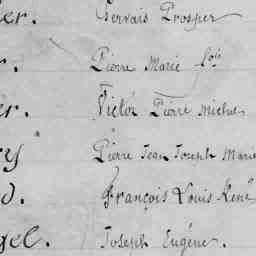 er. Gervais Prosper
r. Pierre Marie fois
er. Victor Pierre Michel
ey Pierre Jean Joseph Marie
d. François Louis René
gel. Joseph Eugène.